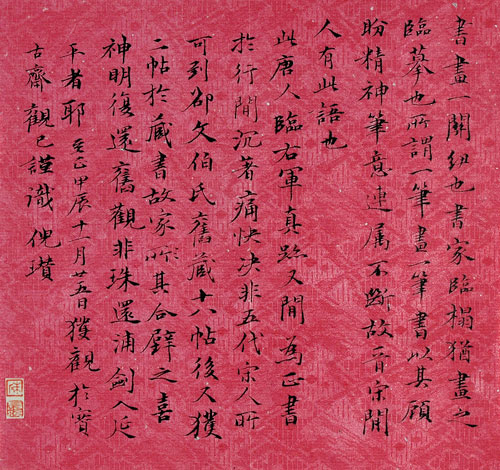 書畫一關紐也書家臨搨猶畫之
臨摹也所謂一筆畫一筆書以其顧
盼精神筆意連属不斷故晉宋間
人有此語也
此唐人臨右軍真跡又間為正書
於行間沉著痛快决非五代宋人所
可到卻文伯氏舊藏十八帖後又獲
二帖於藏書故家所其合璧之喜
神明復還舊觀非珠還浦劍入延
平者耶至正甲辰十一月廿五日獲觀於寶
古齋觀已謹識倪瓚